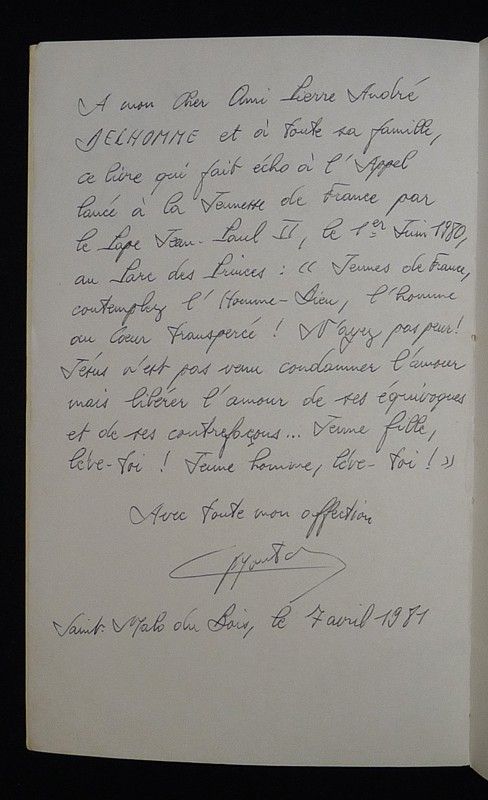 A mon cher Ami Pierre André
DELHOMME et à toute sa famille,
ce livre qui fait écho à l'Appel
lancé à la Jeunesse de France par
le Pape Jean-Paul II, le 1er Juin 1980,
au Parc des Princes : « Jeunes de France,
contemplez l'Homme-Dieu, l'homme
au Coeur transpercé ! N'ayez pas peur !
Jésus n'est pas venu condamner l'amour
mais libérer l'amour de ses équivoques
et de ses contrefaçons... Jeune fille,
lève-toi ! Jeune homme, lève-toi ! »
Avec toute mon affection
Saint-Malo du Bois, le 7 avril 1981